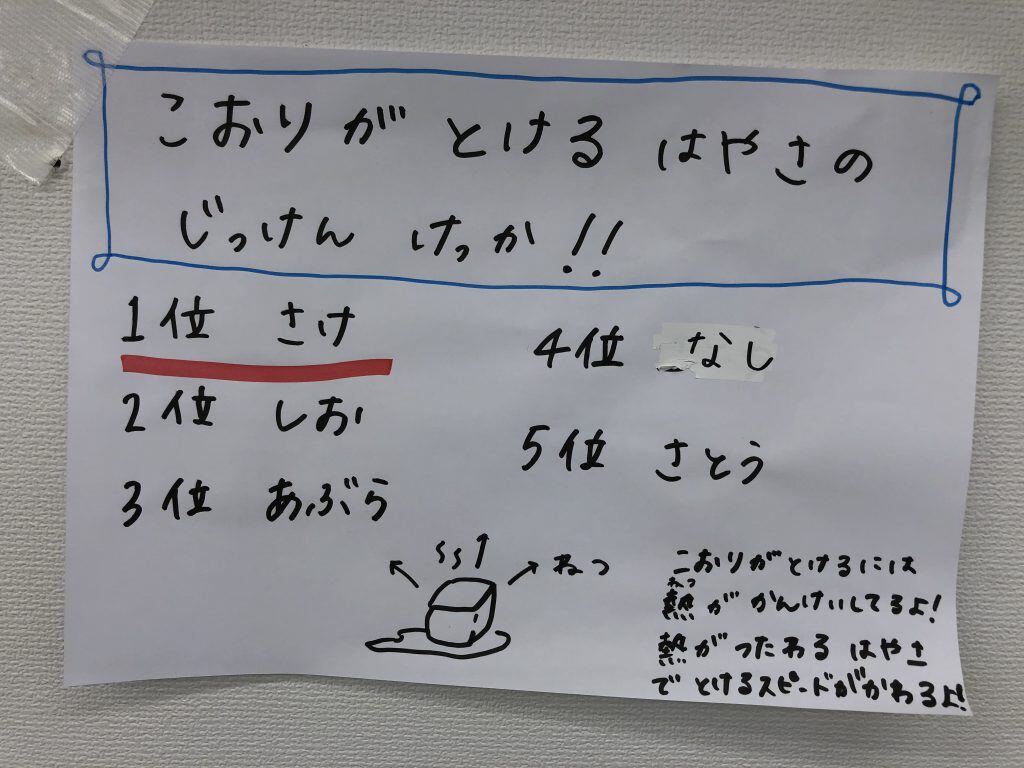 こおりが とける はやさの
じっけん けっか!!
1位 さけ
2位 しお
3位 あぶら
4位 なし
5位 さとう
ねつ
こおりがとけるには
ねつ
熱が かんけいしてるよ!
熱がつたわる はやさ
で とけるスピードがかわるよ!